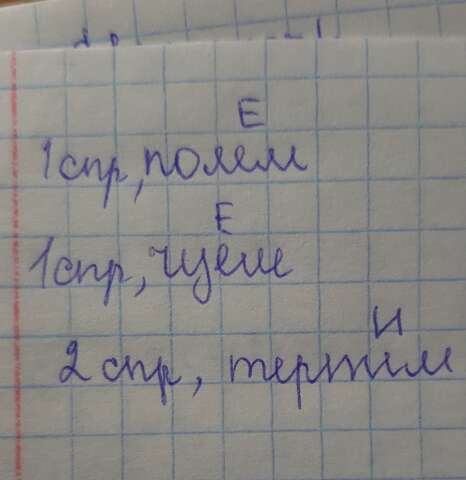 Е
1спр, полем
Е
1спр, чуем
И
2 спр, терпим